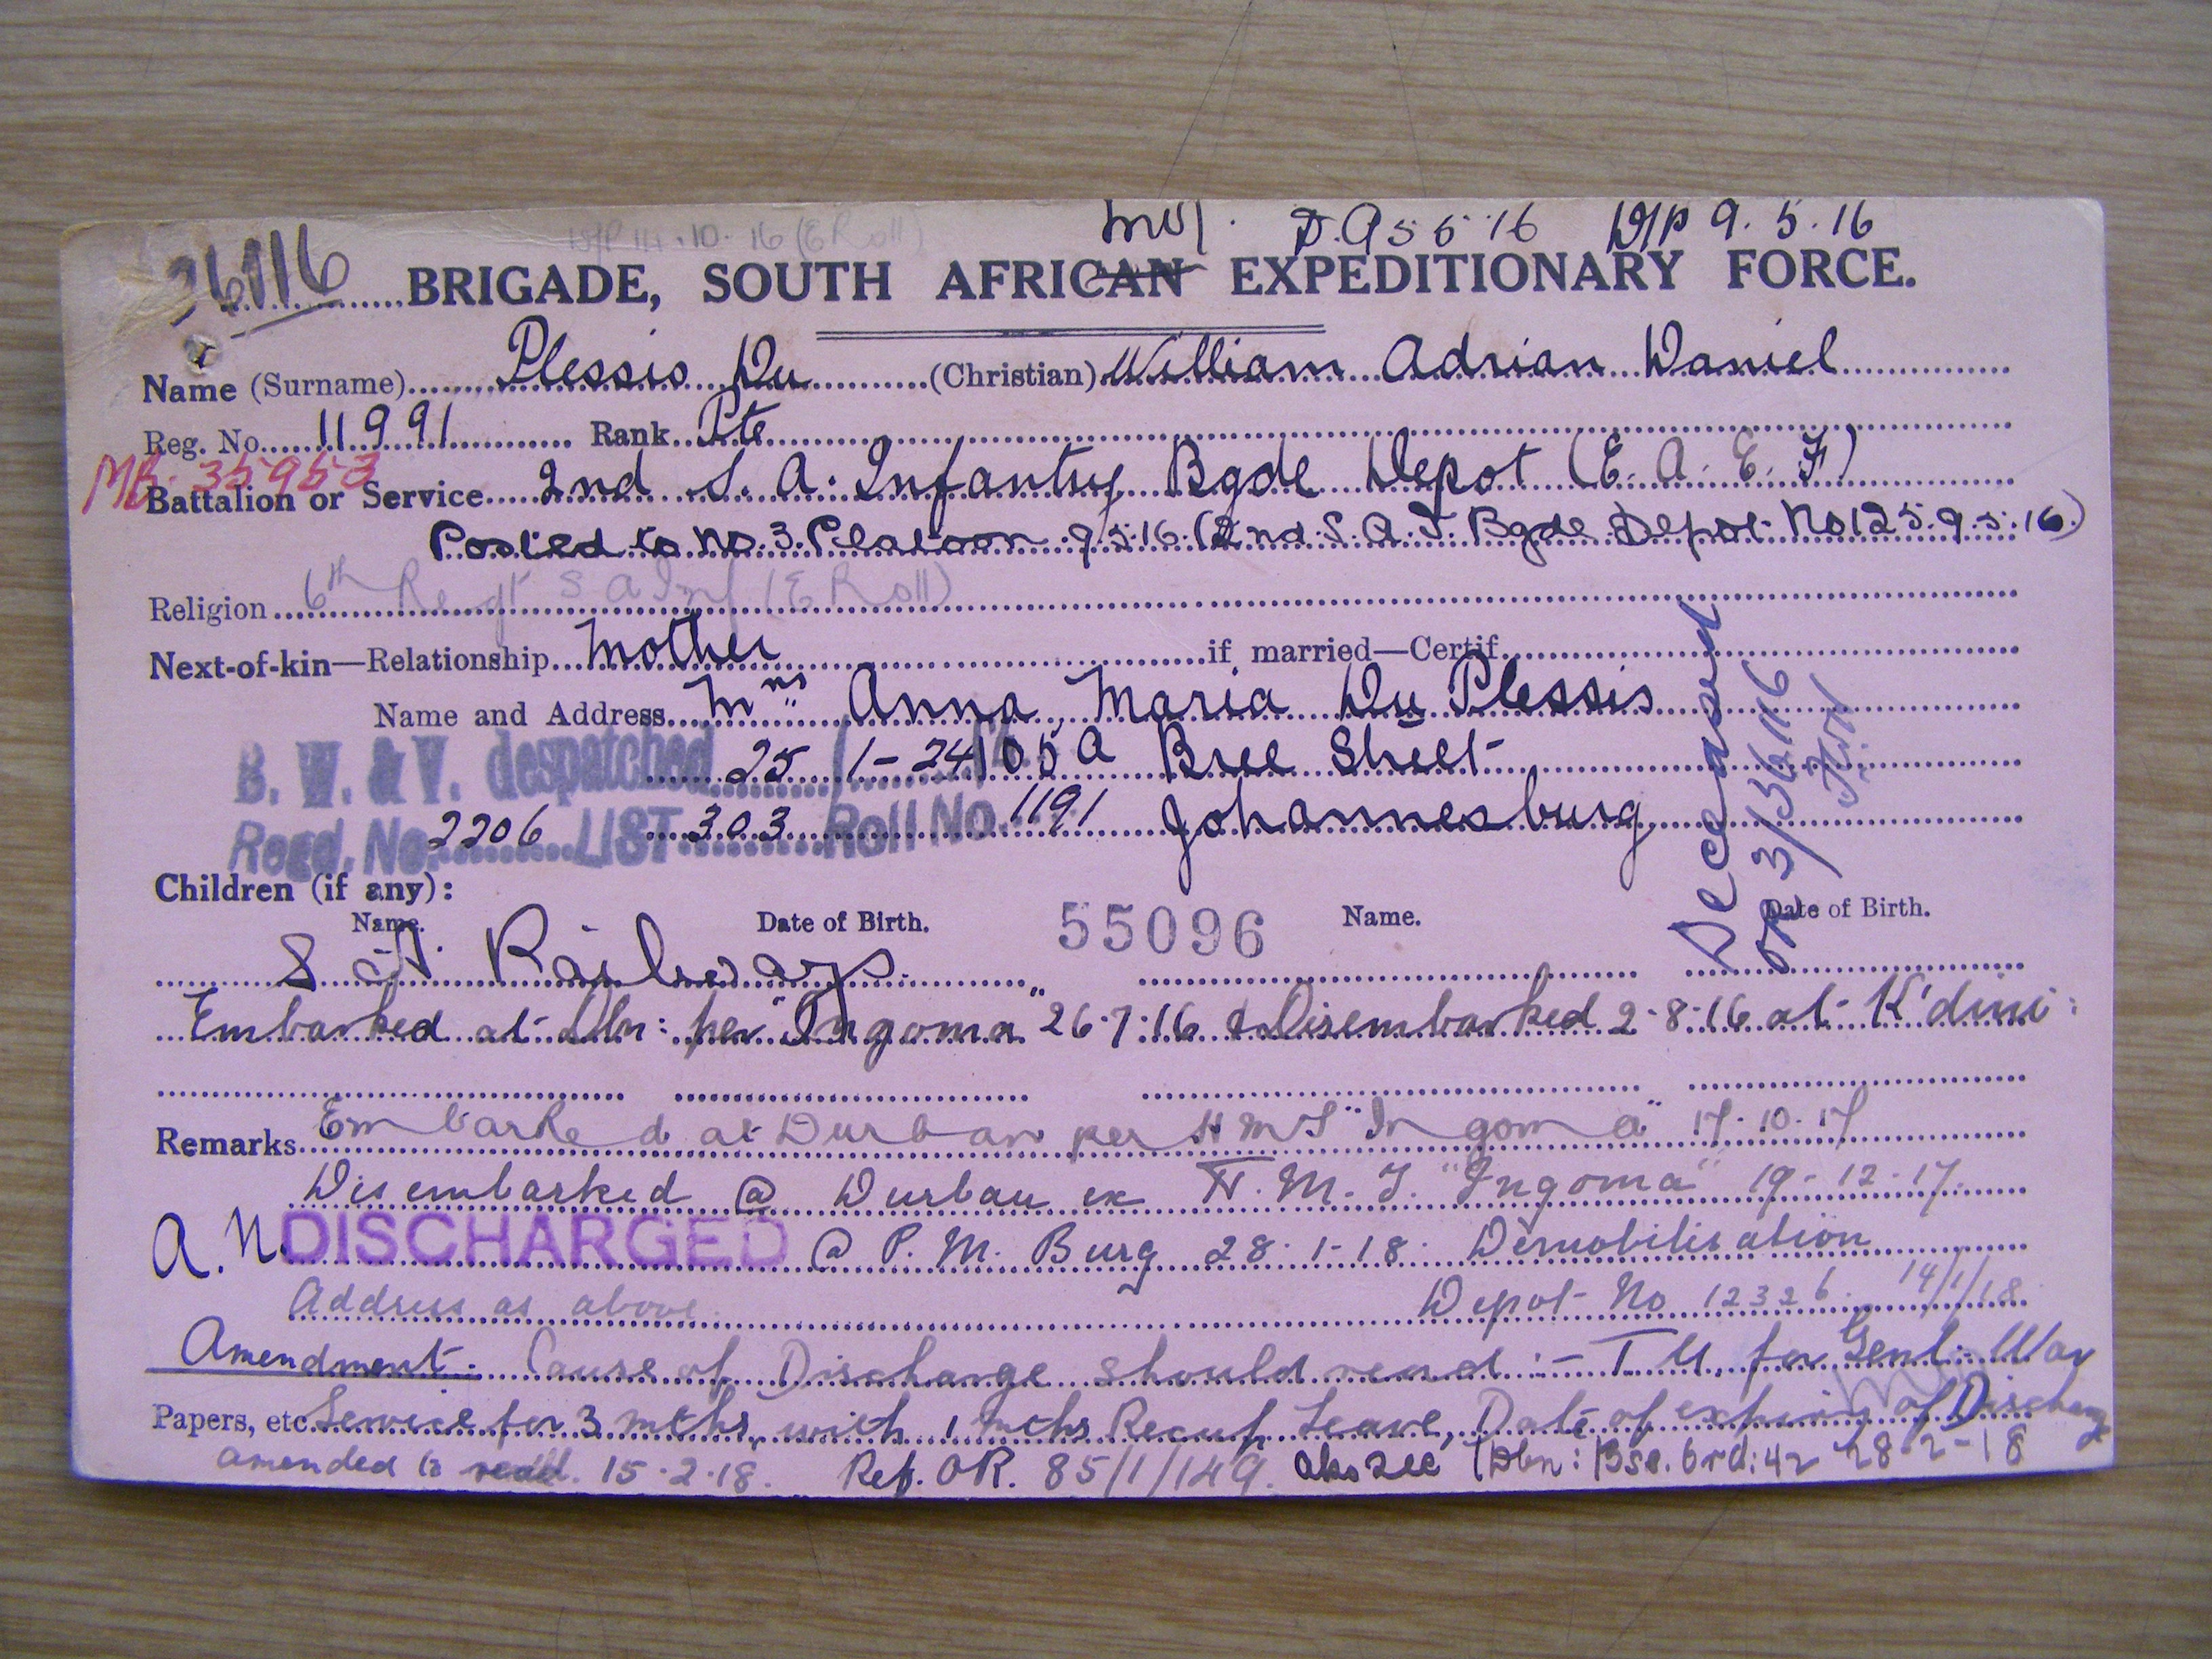 D/P 14.10.16 (E Roll)
D.A 5 5 16 D/P 9.5.16
36116
BRIGADE, SOUTH AFRICAN EXPEDITIONARY FORCE.
Name (Surname) Plessis Du (Christian) William Adrian Daniel
Reg. No. 11991 Rank Pte
MB. 35953
Battalion or Service 2nd S. A. Infantry Bgde Depot (E. A. E. F)
Posted to No. 3. Platoon. 9.5.16 (2nd. S. A. I. Bgde Depot. No 125. 9.5.16.)
Religion 6th Regt S A Inf (E Roll)
Next-of-kin—Relationship Mother if married—Certif.
Name and Address Mrs Anna Maria Du Plessis
B. W. & V. despatched 25/1-24 105A Bree Street
Regd. No. 2206 LIST 303 Roll No. 1191 Johannesburg
Deceased
OR 3/36116
Children (if any):
Name. Date of Birth. 55096 Name. Date of Birth.
S A Railways
Embarked at Dbn: per "Ingoma" 26.7.16 & Disembarked 2.8.16 at K'dini:
Remarks Embarked at Durban per HMT "Ingoma" 17.10.17
Disembarked @ Durban ex H.M.T. "Ingoma" 19-12-17.
A.N. DISCHARGED @ P. M. Burg 28.1.18. Demobilisation
Address as above. Depot No 12326. 14/1/18
Amendment:- Cause of Discharge should read:- T.U. for Genl. War
Papers, etc. Service for 3 mths, with 1 mths Recup Leave, Date of expiry of Discharge
amended to read. 15.2.18. Ref. OR. 85/1/149. also see (Dbn: Bse. Ord: 42 28-2-18